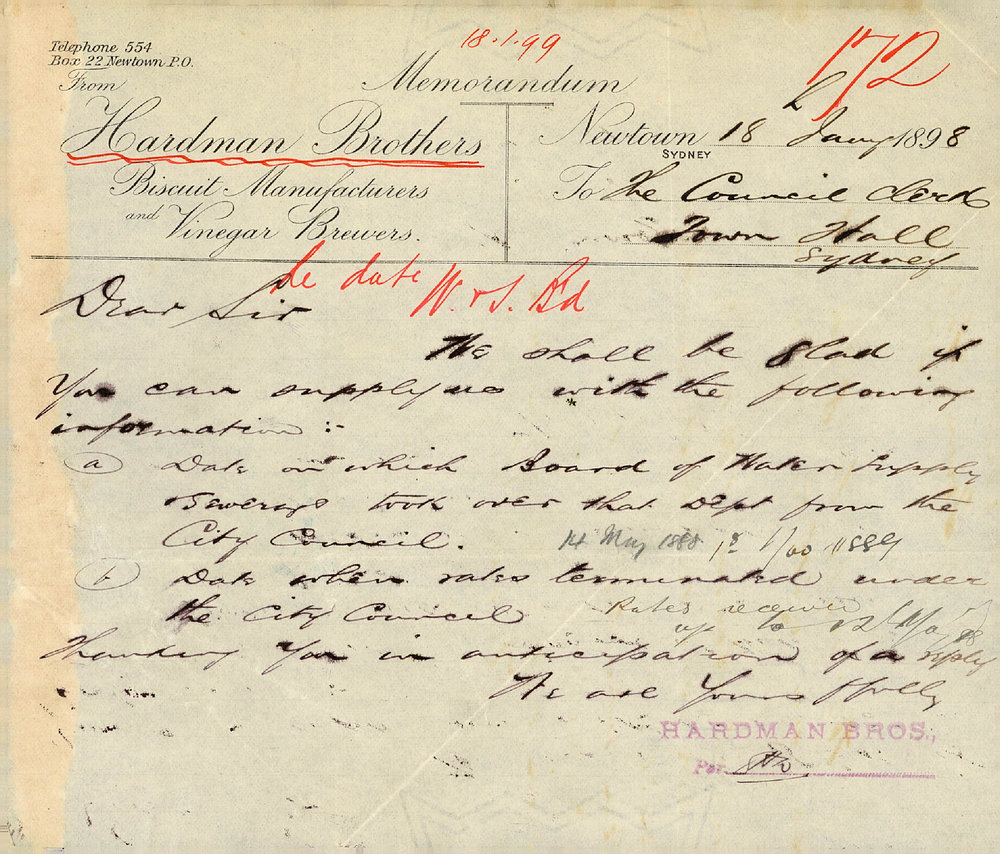 Telephone 554
Box 22 Newtown P.O.
18.1.99
172
From
Memorandum
Hardman Brothers
Newtown 18 Jany 1898
SYDNEY
Biscuit Manufacturers
and
Vinegar Brewers.
To The Council Clerk
Town Hall
Sydney
re date W. & S. Bd
Dear Sir
We shall be glad if
you can supply us with the following
information :-
a Date on which Board of Water Supply
& Sewerage took over that Dept from the
City Council. 14 May 1888 1st Nov 1889
b Date when rates terminated under
the City Council Rates received
up to
Thanking you in anticipation of a reply
We are Yours ffully
HARDMAN BROS.,
Per